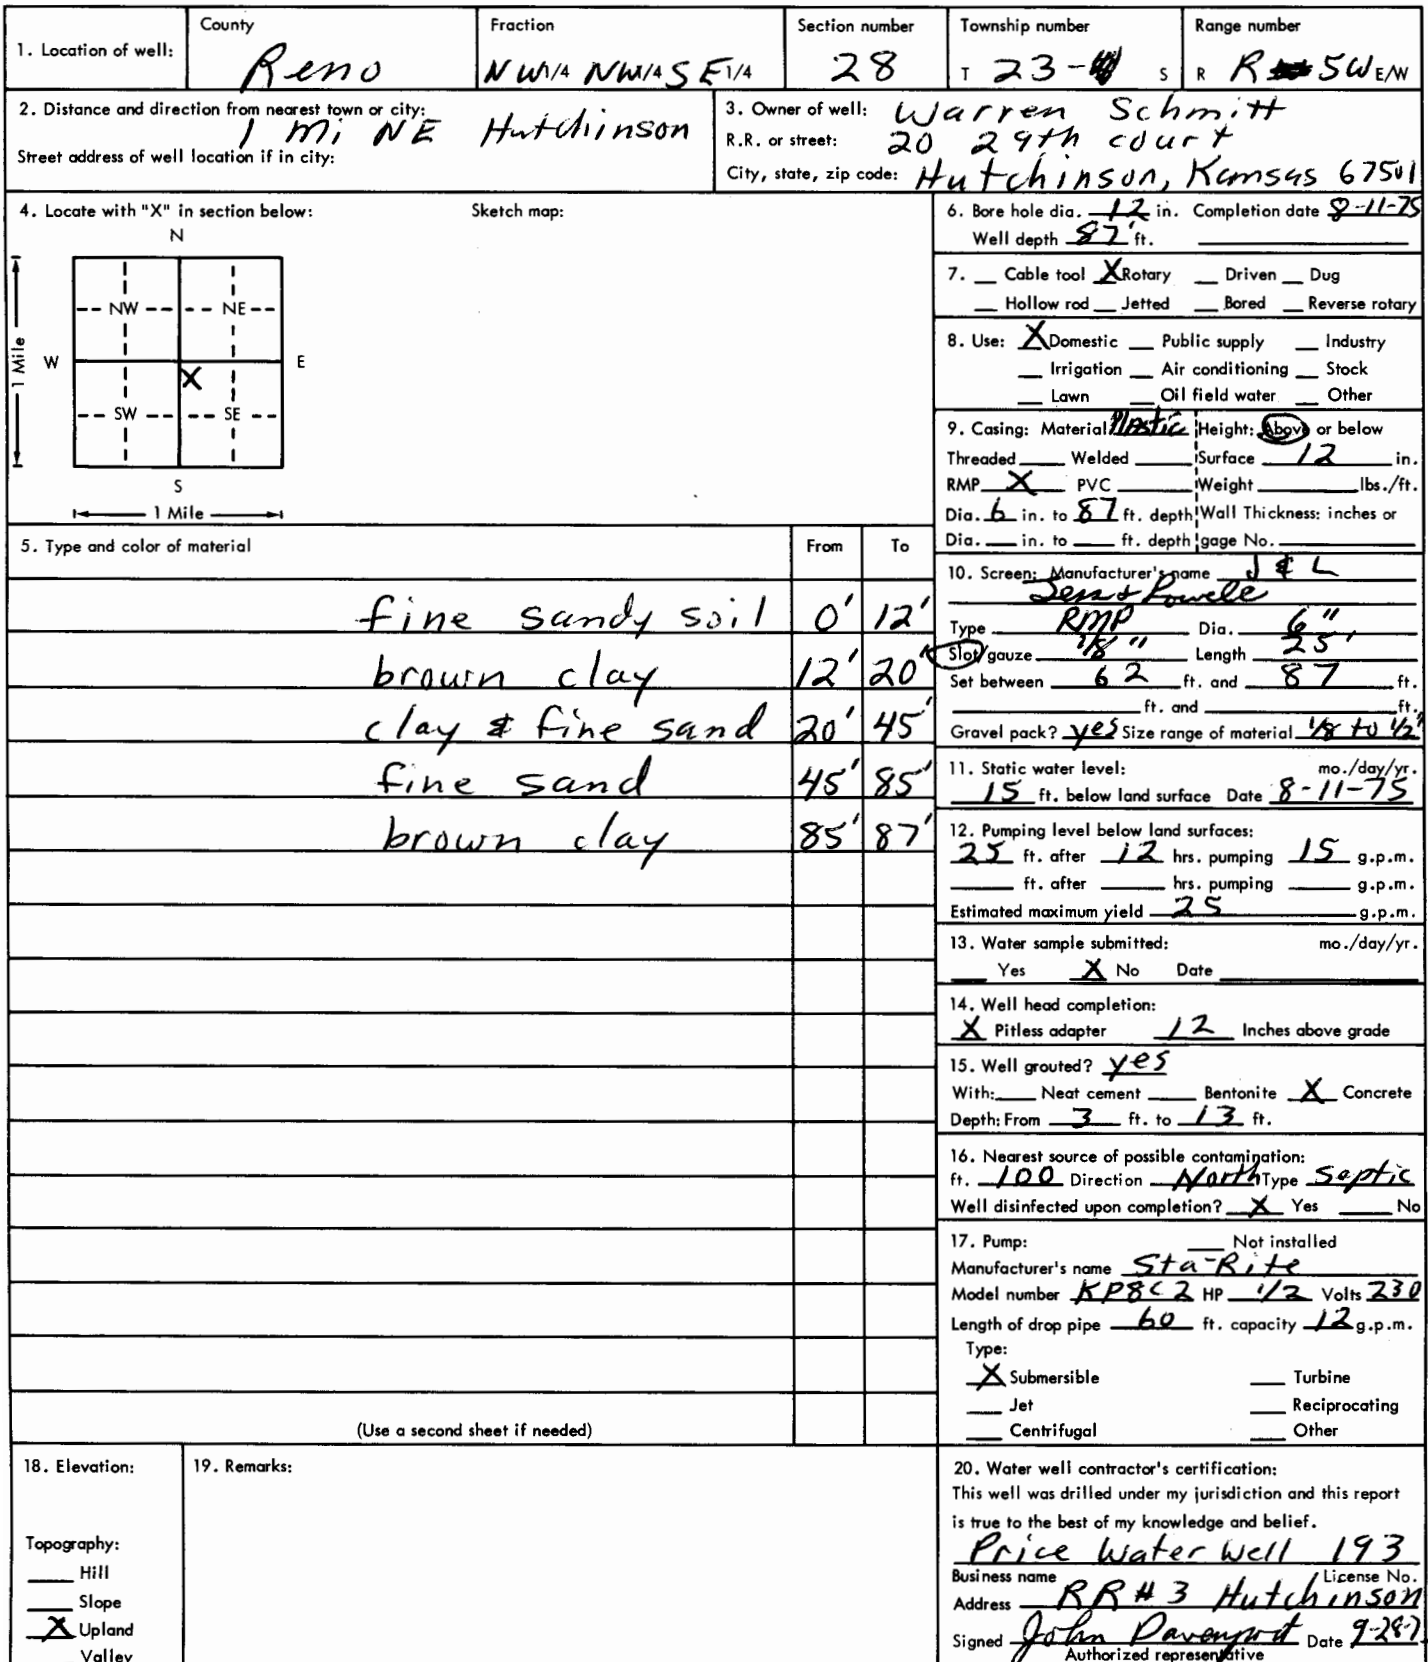 1. Location of well:
County
Reno
Fraction
NW 1/4 NW 1/4 SE 1/4
Section number
28
Township number
T 23- S
Range number
R R 5W E/W
2. Distance and direction from nearest town or city:
1 mi NE Hutchinson
Street address of well location if in city:
3. Owner of well: Warren Schmitt
R.R. or street: 20 29th court
City, state, zip code: Hutchinson, Kansas 67501
4. Locate with "X" in section below:
Sketch map:
N
NW NE
W E
X
SW SE
S
1 Mile
1 Mile
5. Type and color of material From To
fine sandy soil 0' 12'
brown clay 12' 20'
clay & fine sand 20' 45'
fine sand 45' 85'
brown clay 85' 87'
(Use a second sheet if needed)
6. Bore hole dia. 12 in. Completion date 8-11-75
Well depth 87' ft.
7. Cable tool X Rotary Driven Dug
Hollow rod Jetted Bored Reverse rotary
8. Use: X Domestic Public supply Industry
Irrigation Air conditioning Stock
Lawn Oil field water Other
9. Casing: Material Plastic Height: Above or below
Threaded Welded Surface 12 in.
RMP X PVC Weight lbs./ft.
Dia. 6 in. to 87 ft. depth Wall Thickness: inches or
Dia. in. to ft. depth gage No.
10. Screen: Manufacturer's name J & L
Type RMP Dia. 6"
Slot/gauze 1/8" Length 25'
Set between 62 ft. and 87 ft.
ft. and ft.
Gravel pack? yes Size range of material 1/8 to 1/2"
11. Static water level: mo./day/yr.
15 ft. below land surface Date 8-11-75
12. Pumping level below land surfaces:
25 ft. after 12 hrs. pumping 15 g.p.m.
ft. after hrs. pumping g.p.m.
Estimated maximum yield 25 g.p.m.
13. Water sample submitted: mo./day/yr.
Yes X No Date
14. Well head completion:
X Pitless adapter 12 Inches above grade
15. Well grouted? yes
With: Neat cement Bentonite X Concrete
Depth: From 3 ft. to 13 ft.
16. Nearest source of possible contamination:
ft. 100 Direction North Type Septic
Well disinfected upon completion? X Yes No
17. Pump: Not installed
Manufacturer's name Sta-Rite
Model number KP8C2 HP 1/2 Volts 230
Length of drop pipe 60 ft. capacity 12 g.p.m.
Type:
X Submersible Turbine
Jet Reciprocating
Centrifugal Other
18. Elevation:
Topography:
Hill
Slope
X Upland
Valley
19. Remarks:
20. Water well contractor's certification:
This well was drilled under my jurisdiction and this report
is true to the best of my knowledge and belief.
Price Water Well 193
Business name License No.
Address RR #3 Hutchinson
Signed John Davenport Date 9-28-7
Authorized representative